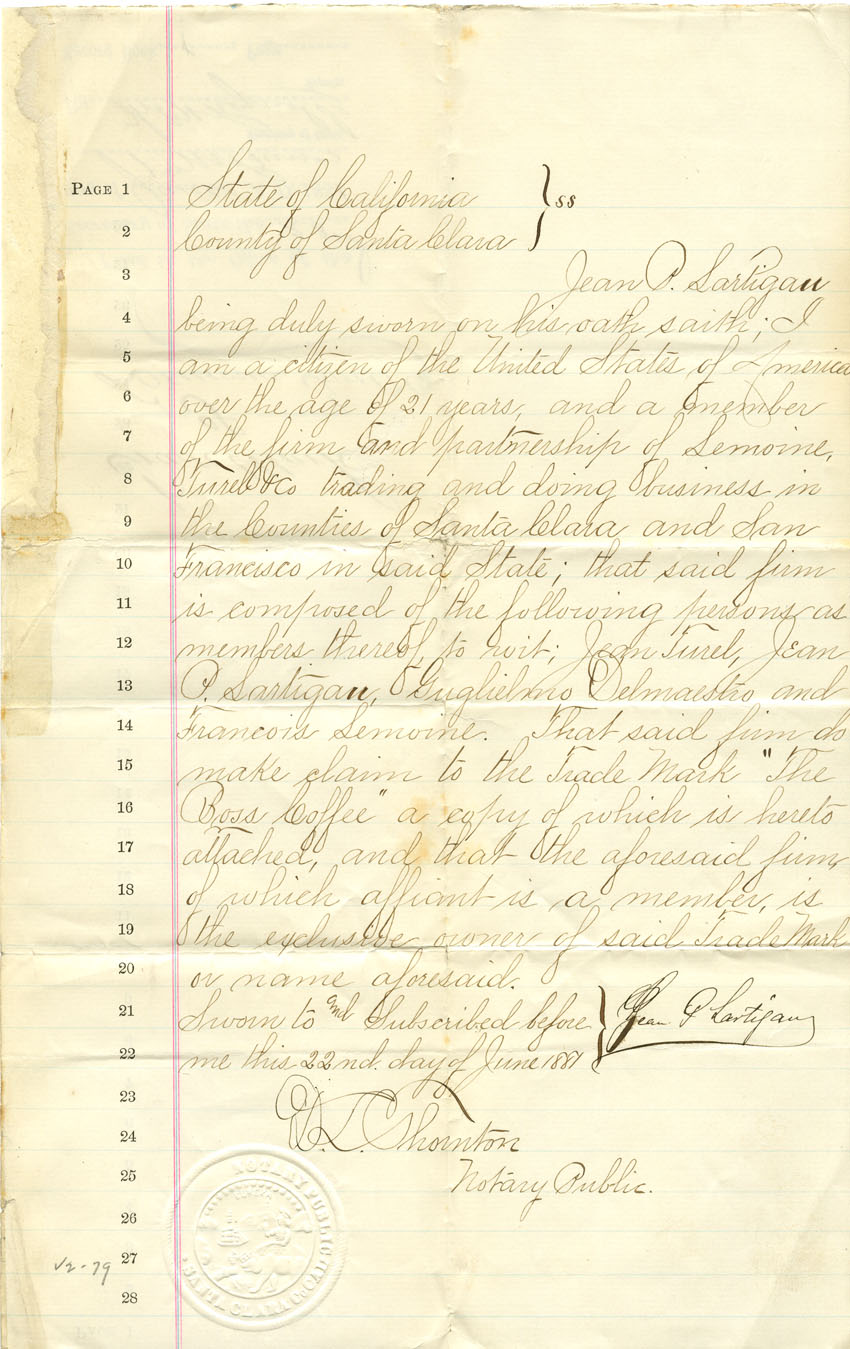 PAGE 1 State of California } ss
2 County of Santa Clara
3 Jean P. Lartigau
4 being duly sworn on his oath saith; I
5 am a citizen of the United States of America
6 over the age of 21 years, and a member
7 of the firm and partnership of Lemoine,
8 Turel & Co trading and doing business in
9 the Counties of Santa Clara and San
10 Francisco in said State; that said firm
11 is composed of the following persons as
12 members thereof, to wit; Jean Turel, Jean
13 P. Lartigau, Guglielmo Delmaestro and
14 Francois Lemoine. That said firm do
15 make claim to the Trade Mark "The
16 Boss Coffee" a copy of which is hereto
17 attached, and that the aforesaid firm
18 of which affiant is a member, is
19 the exclusive owner of said Trade Mark
20 or name aforesaid.
21 Sworn to and Subscribed before } Jean P Lartigau
22 me this 22nd. day of June 1881
23
24 Thornton
25 Notary Public.
26
27
28
V2-79
NOTARY PUBLIC
SANTA CLARA Co. CAL.